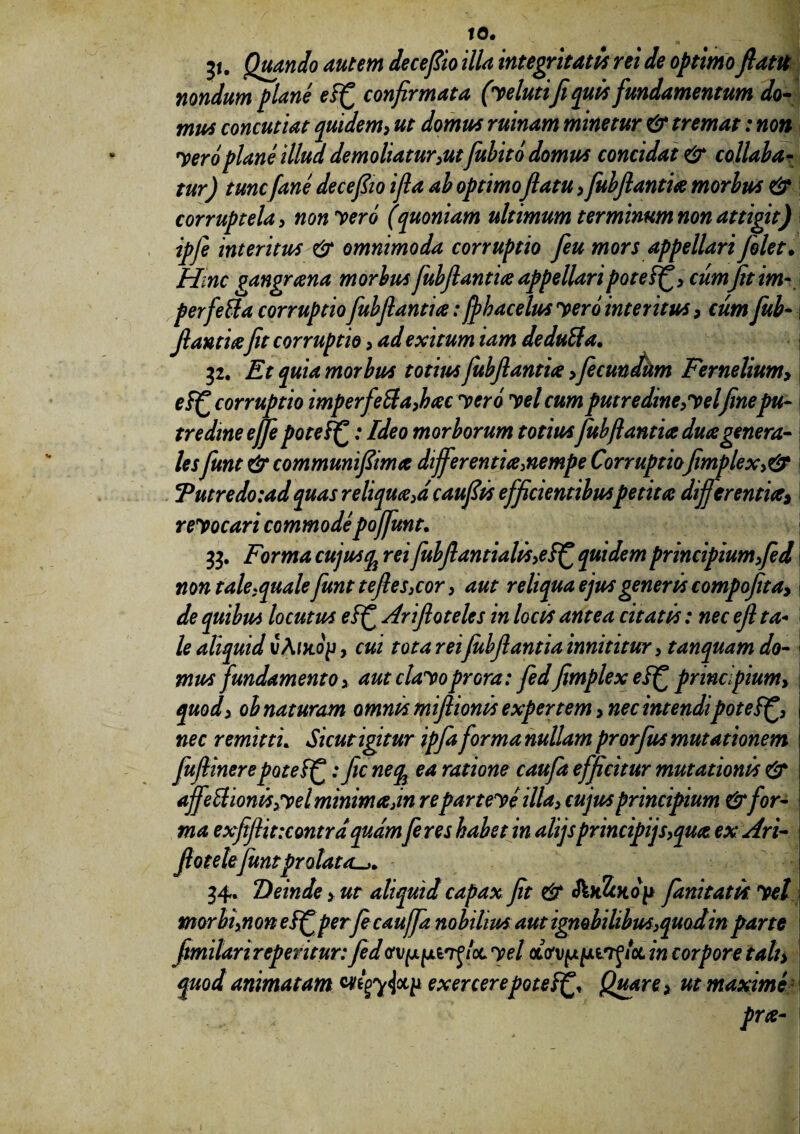 10.
31. Quando autem deceßio illa integritatis rei de optimo ſtatu
nondum planè eſt confirmata (veluti ſi quis fundamentum do-
mus concutiat quidem, ut domus ruinam minetur & tremat: non
verò planè illud demoliatur, ut ſubitò domus concidat & collaba-
tur) tunc ſanè deceßio iſta ab optimo ſtatu, ſubſtantiæ morbus &
corruptela, non verò (quoniam ultimum terminum non attigit)
ipſe interitus & omnimoda corruptio ſeu mors appellari ſolet.
Hinc gangræna morbus ſubſtantiæ appellari poteſt, cùm ſit im-
perfecta corruptio ſubſtantiæ: ſphacelus verò interitus, cùm ſub-
ſtantiæ ſit corruptio, ad exitum iam deducta.
32. Et quia morbus totius ſubſtantiæ, ſecundùm Fernelium,
eſt corruptio imperfecta, hæc verò vel cum putredine, vel ſine pu-
tredine eſſe poteſt: Ideo morborum totius ſubſtantiæ duæ genera-
les ſunt & communißimæ differentiæ, nempe Corruptio ſimplex, &
Putredo: ad quas reliquæ, à caußis efficientibus petitæ differentiæ,
revocari commodè poſſunt.
33. Forma cujusq́; rei ſubſtantialis, eſt quidem principium, ſed
non tale, quale ſunt teſtes, cor, aut reliqua ejus generis compoſita,
de quibus locutus eſt Ariſtoteles in locis antea citatis: nec eſt ta-
le aliquid ὑλικὸν, cui tota rei ſubſtantia innititur, tanquam do-
mus fundamento, aut clavo prora: ſed ſimplex eſt principium,
quod, ob naturam omnis miſtionis expertem, nec intendi poteſt,
nec remitti. Sicut igitur ipſa forma nullam prorſus mutationem
ſuſtinere poteſt: ſic neq́; ea ratione cauſa efficitur mutationis &
affectionis, vel minimæ, in re parteve illa, cujus principium & for-
ma exſiſtit: contrà quàm ſe res habet in alijs principijs, quæ ex Ari-
ſtotele ſunt prolata.
34. Deinde, ut aliquid capax ſit & δεκτικὸν ſanitatis vel
morbi, non eſt per ſe cauſſa nobilius aut ignobilibus, quod in parte
ſimilari reperitur: ſed συμμετρία vel ἀσυμμετρία in corpore tali,
quod animatam ἐνέργειαν exercere poteſt. Quare, ut maximè
præ-